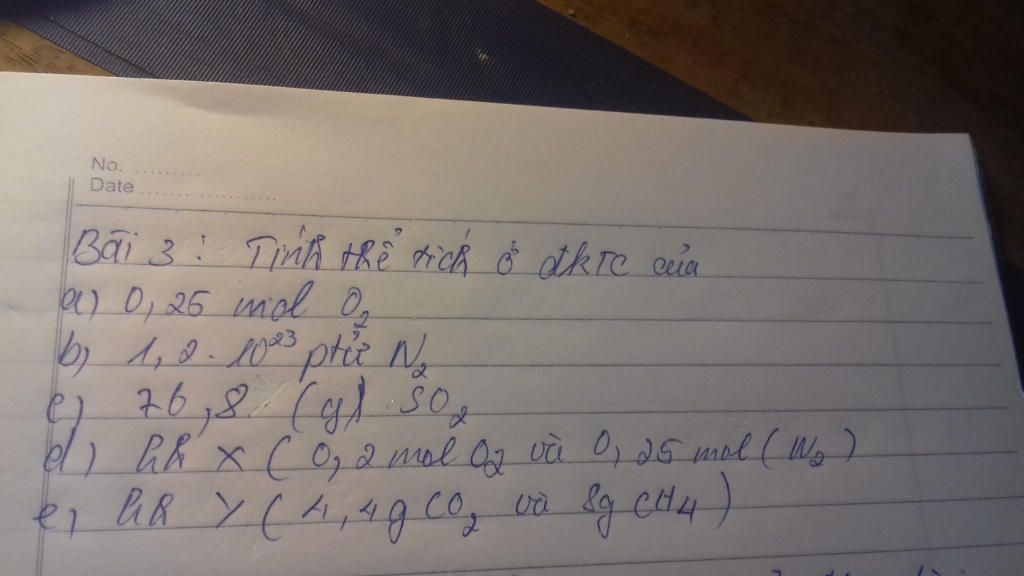 No. .........
Date ....................
Bài 3 : Tính thể tích ở đktc của
a) 0,25 mol O2
b) 1,2.10^23 ptử N2
c) 76,8 (g) SO2
d) hh X ( 0,2 mol O2 và 0,25 mol (N2)
e) hh Y ( 4,4g CO2 và 8g CH4 )